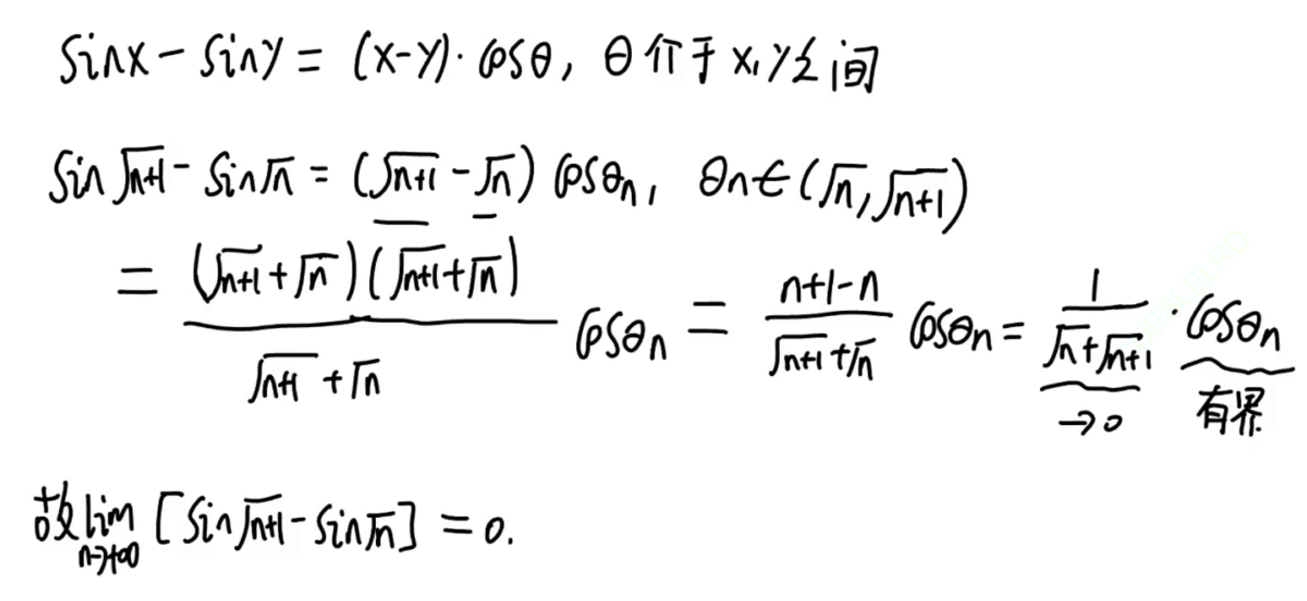 sinx - siny = (x-y)·cosθ, θ介于x,y之间
sin√(n+1) - sin√n = (√(n+1) - √n) cosθn, θn∈(√n,√(n+1))
= (√(n+1)+√n)(√(n+1)+√n) / (√(n+1)+√n) cosθn = (n+1-n) / (√(n+1)+√n) cosθn = 1 / (√n+√(n+1)) · cosθn
→0 有界
故lim n→+∞ [sin√(n+1) - sin√n] = 0.